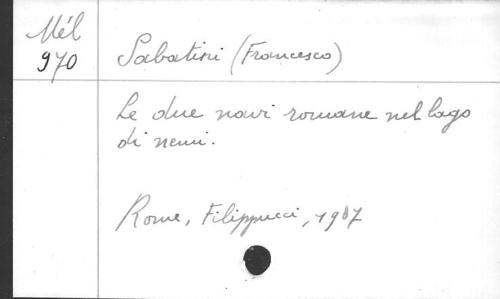 Mél
970
Sabatini (Francesco)
Le due navi romane nel lago
di nemi.
Rome, Filippucci, 1907